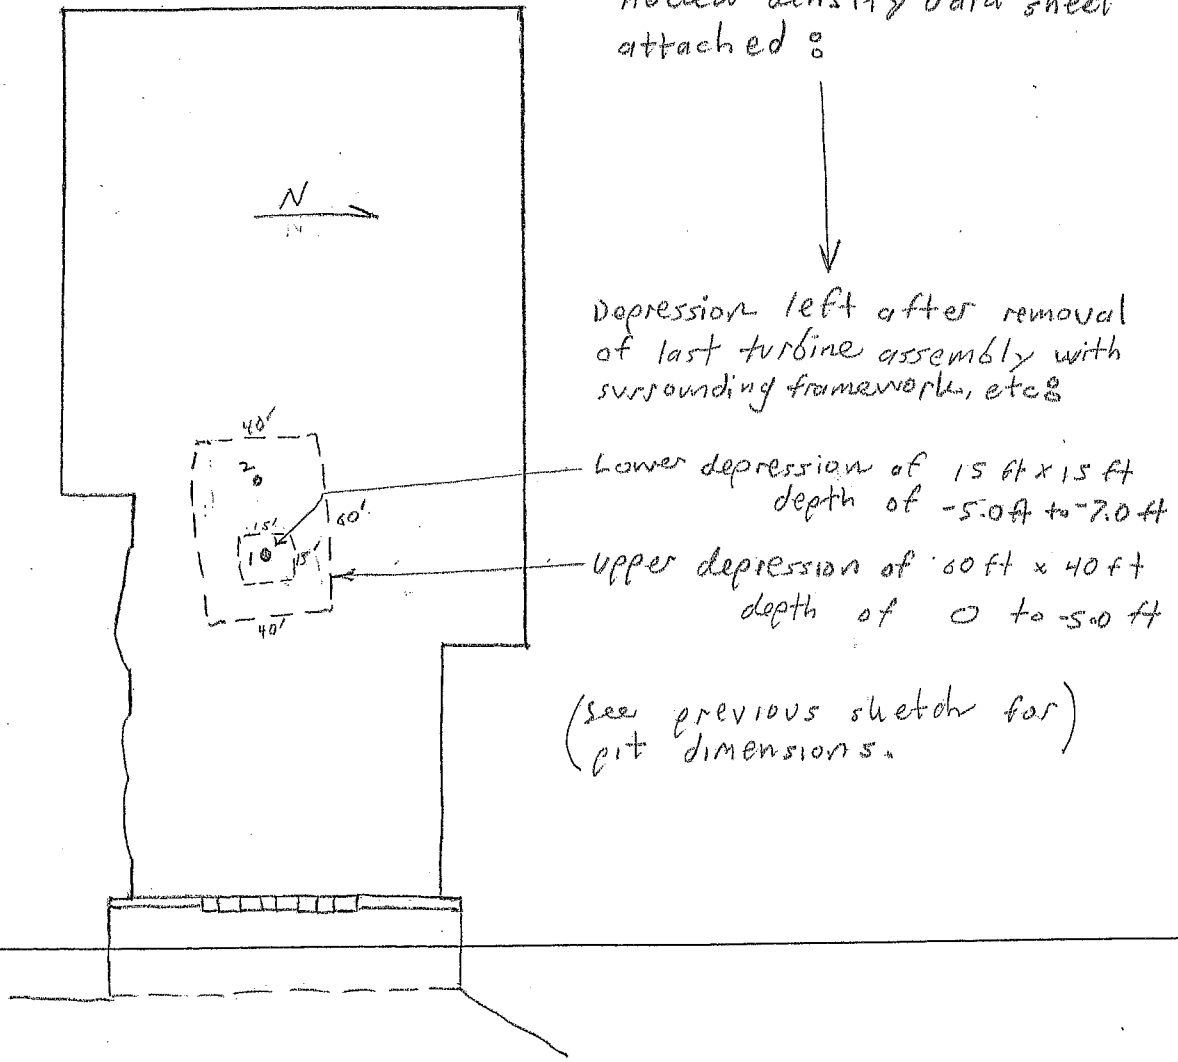 density data sheet
attached :
N
Depression left after removal
of last turbine assembly with
surrounding framework, etc:
40'
2
Lower depression of 15 ft x 15 ft
depth of -5.0ft to -7.0 ft
60'
15'
1
15'
Upper depression of 60 ft x 40 ft
depth of 0 to -5.0 ft
40'
(see previous sketch for)
pit dimensions.